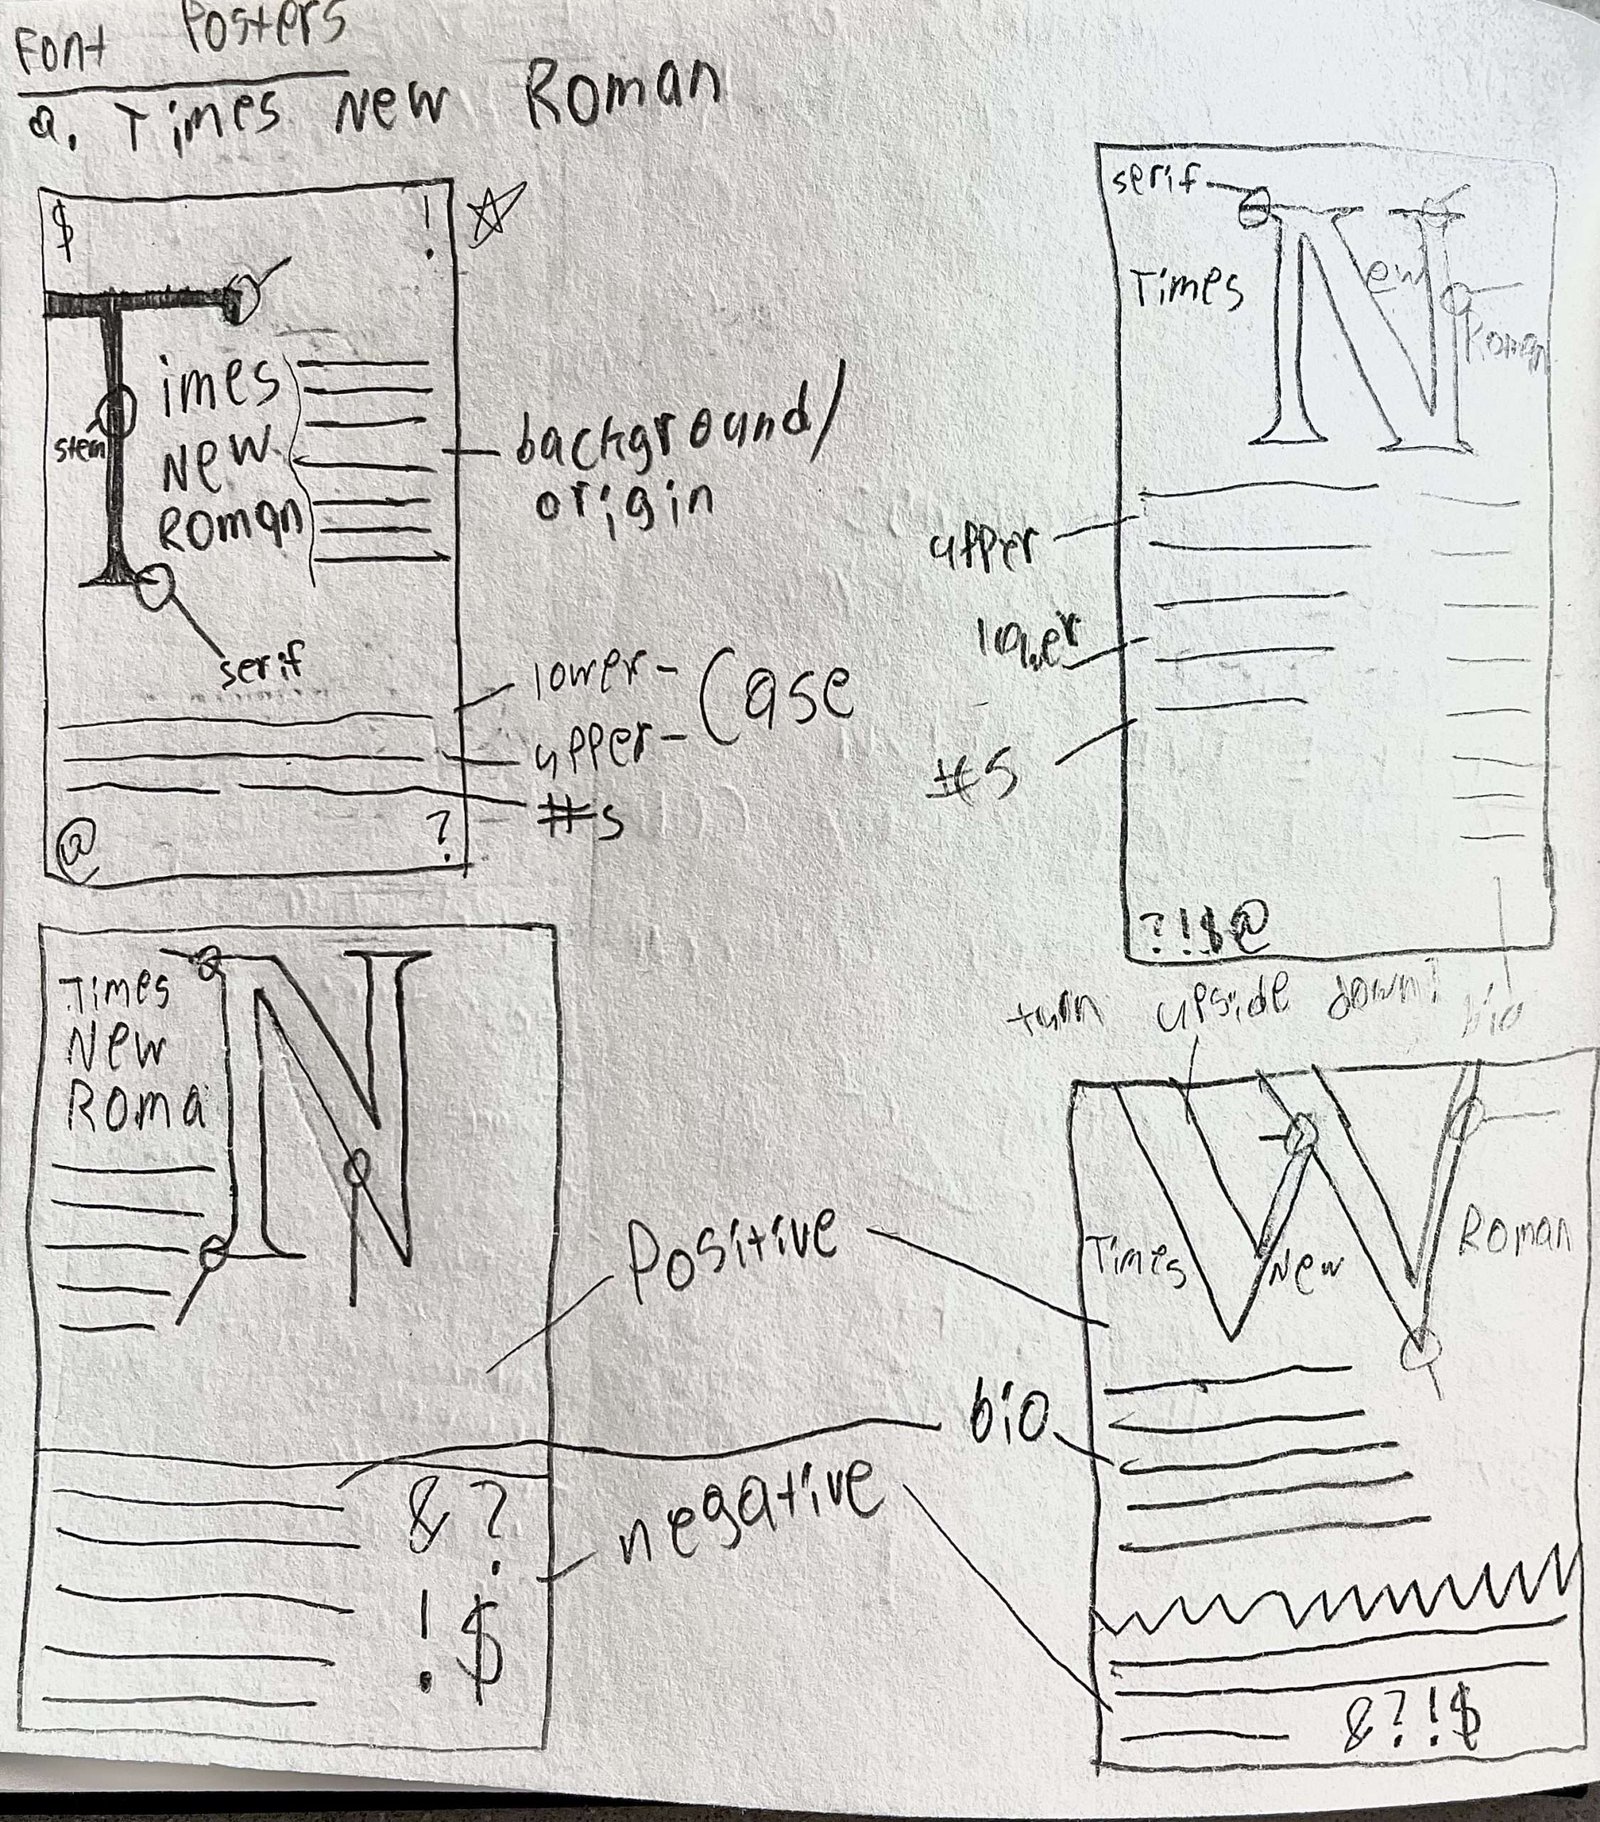 Font Posters
a. Times New Roman
$ !
T
imes
New
Roman
stem
serif
background/
origin
lower-
upper-
Case
#s
@ ?
serif
N
Times
ew
Roman
upper
lower
#s
?!$@
turn upside down?
bio
Times
New
Roma
N
Positive
bio
negative
& ?
! $
W
Times New Roman
&?!$